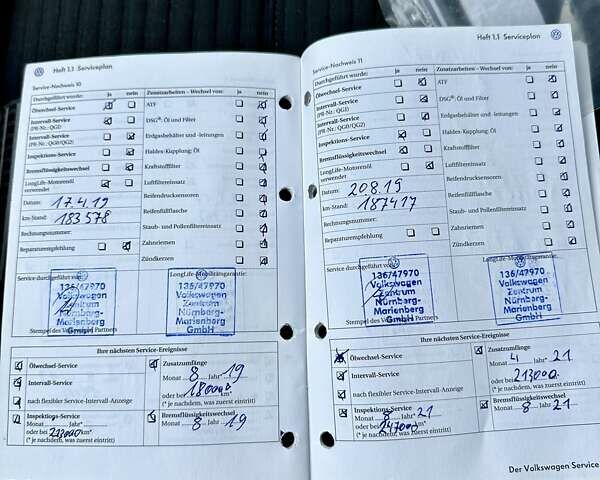 Heft 1.1 Serviceplan
Service-Nachweis 10
Durchgeführt wurde: ja nein Zusatzarbeiten - Wechsel von: ja nein
Ölwechsel-Service ATF
Intervall-Service
(PR-Nr.: QG1) DSG®: Öl und Filter
Intervall-Service
(PR-Nr.: QG0/QG2) Erdgasbehälter und -leitungen
Inspektions-Service Haldex-Kupplung: Öl
Bremsflüssigkeitswechsel Kraftstofffilter
LongLife-Motorenöl
verwendet Luftfiltereinsatz
Datum: 17.4.19 Reifendrucksensoren
km-Stand: 183578 Reifenfüllflasche
Rechnungsnummer: Staub- und Pollenfiltereinsatz
Reparaturempfehlung Zahnriemen
Zündkerzen
Service durchgeführt von: LongLife-Mobilitätsgarantie:
136/47970
Volkswagen
Zentrum
Nürnberg-
Marienberg
GmbH
136/47970
Volkswagen
Zentrum
Nürnberg-
Marienberg
GmbH
Stempel des Volkswagen Partners
Ihre nächsten Service-Ereignisse
Ölwechsel-Service
Intervall-Service
nach flexibler Service-Intervall-Anzeige
Inspektions-Service
Monat Jahr*
oder bei 213000 km*
(* je nachdem, was zuerst eintritt)
Zusatzumfänge
Monat 8 Jahr* 19
oder bei km*
(* je nachdem, was zuerst eintritt)
Bremsflüssigkeitswechsel
Monat 8 Jahr 19
Heft 1.1 Serviceplan
Service-Nachweis 11
Durchgeführt wurde: ja nein Zusatzarbeiten - Wechsel von: ja nein
Ölwechsel-Service ATF
Intervall-Service
(PR-Nr.: QG1) DSG®: Öl und Filter
Intervall-Service
(PR-Nr.: QG0/QG2) Erdgasbehälter und -leitungen
Inspektions-Service Haldex-Kupplung: Öl
Bremsflüssigkeitswechsel Kraftstofffilter
LongLife-Motorenöl
verwendet Luftfiltereinsatz
Datum: 20.8.19 Reifendrucksensoren
km-Stand: 187417 Reifenfüllflasche
Rechnungsnummer: Staub- und Pollenfiltereinsatz
Reparaturempfehlung Zahnriemen
Zündkerzen
Service durchgeführt von: LongLife-Mobilitätsgarantie:
136/47970
Volkswagen
Zentrum
Nürnberg-
Marienberg
GmbH
136/47970
Volkswagen
Zentrum
Nürnberg-
Marienberg
GmbH
Stempel des Volkswagen Partners
Ihre nächsten Service-Ereignisse
Ölwechsel-Service
Intervall-Service
nach flexibler Service-Intervall-Anzeige
Inspektions-Service
Monat 8 Jahr* 21
oder bei 247000 km*
(* je nachdem, was zuerst eintritt)
Zusatzumfänge
Monat 4 Jahr* 21
oder bei 213000 km*
(* je nachdem, was zuerst eintritt)
Bremsflüssigkeitswechsel
Monat 8 Jahr 21
Der Volkswagen Service